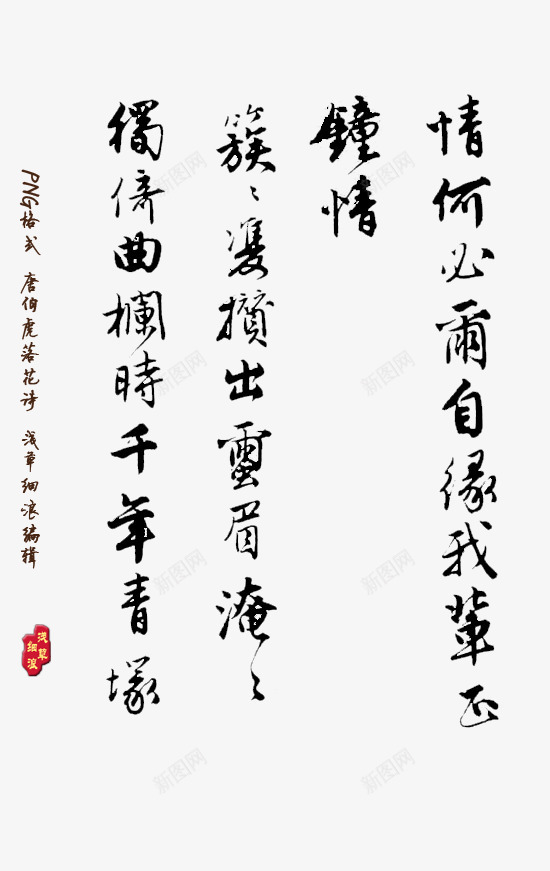 情何必爾自緣我輩正
鐘情
簇〻雙攢出蠒眉淹〻
獨倚曲欄時千年青塚
PNG格式 唐伯虎落花诗 浅草细浪编辑
浅草
细浪
新图网
新图网
新图网
新图网
新图网
新图网
新图网
新图网